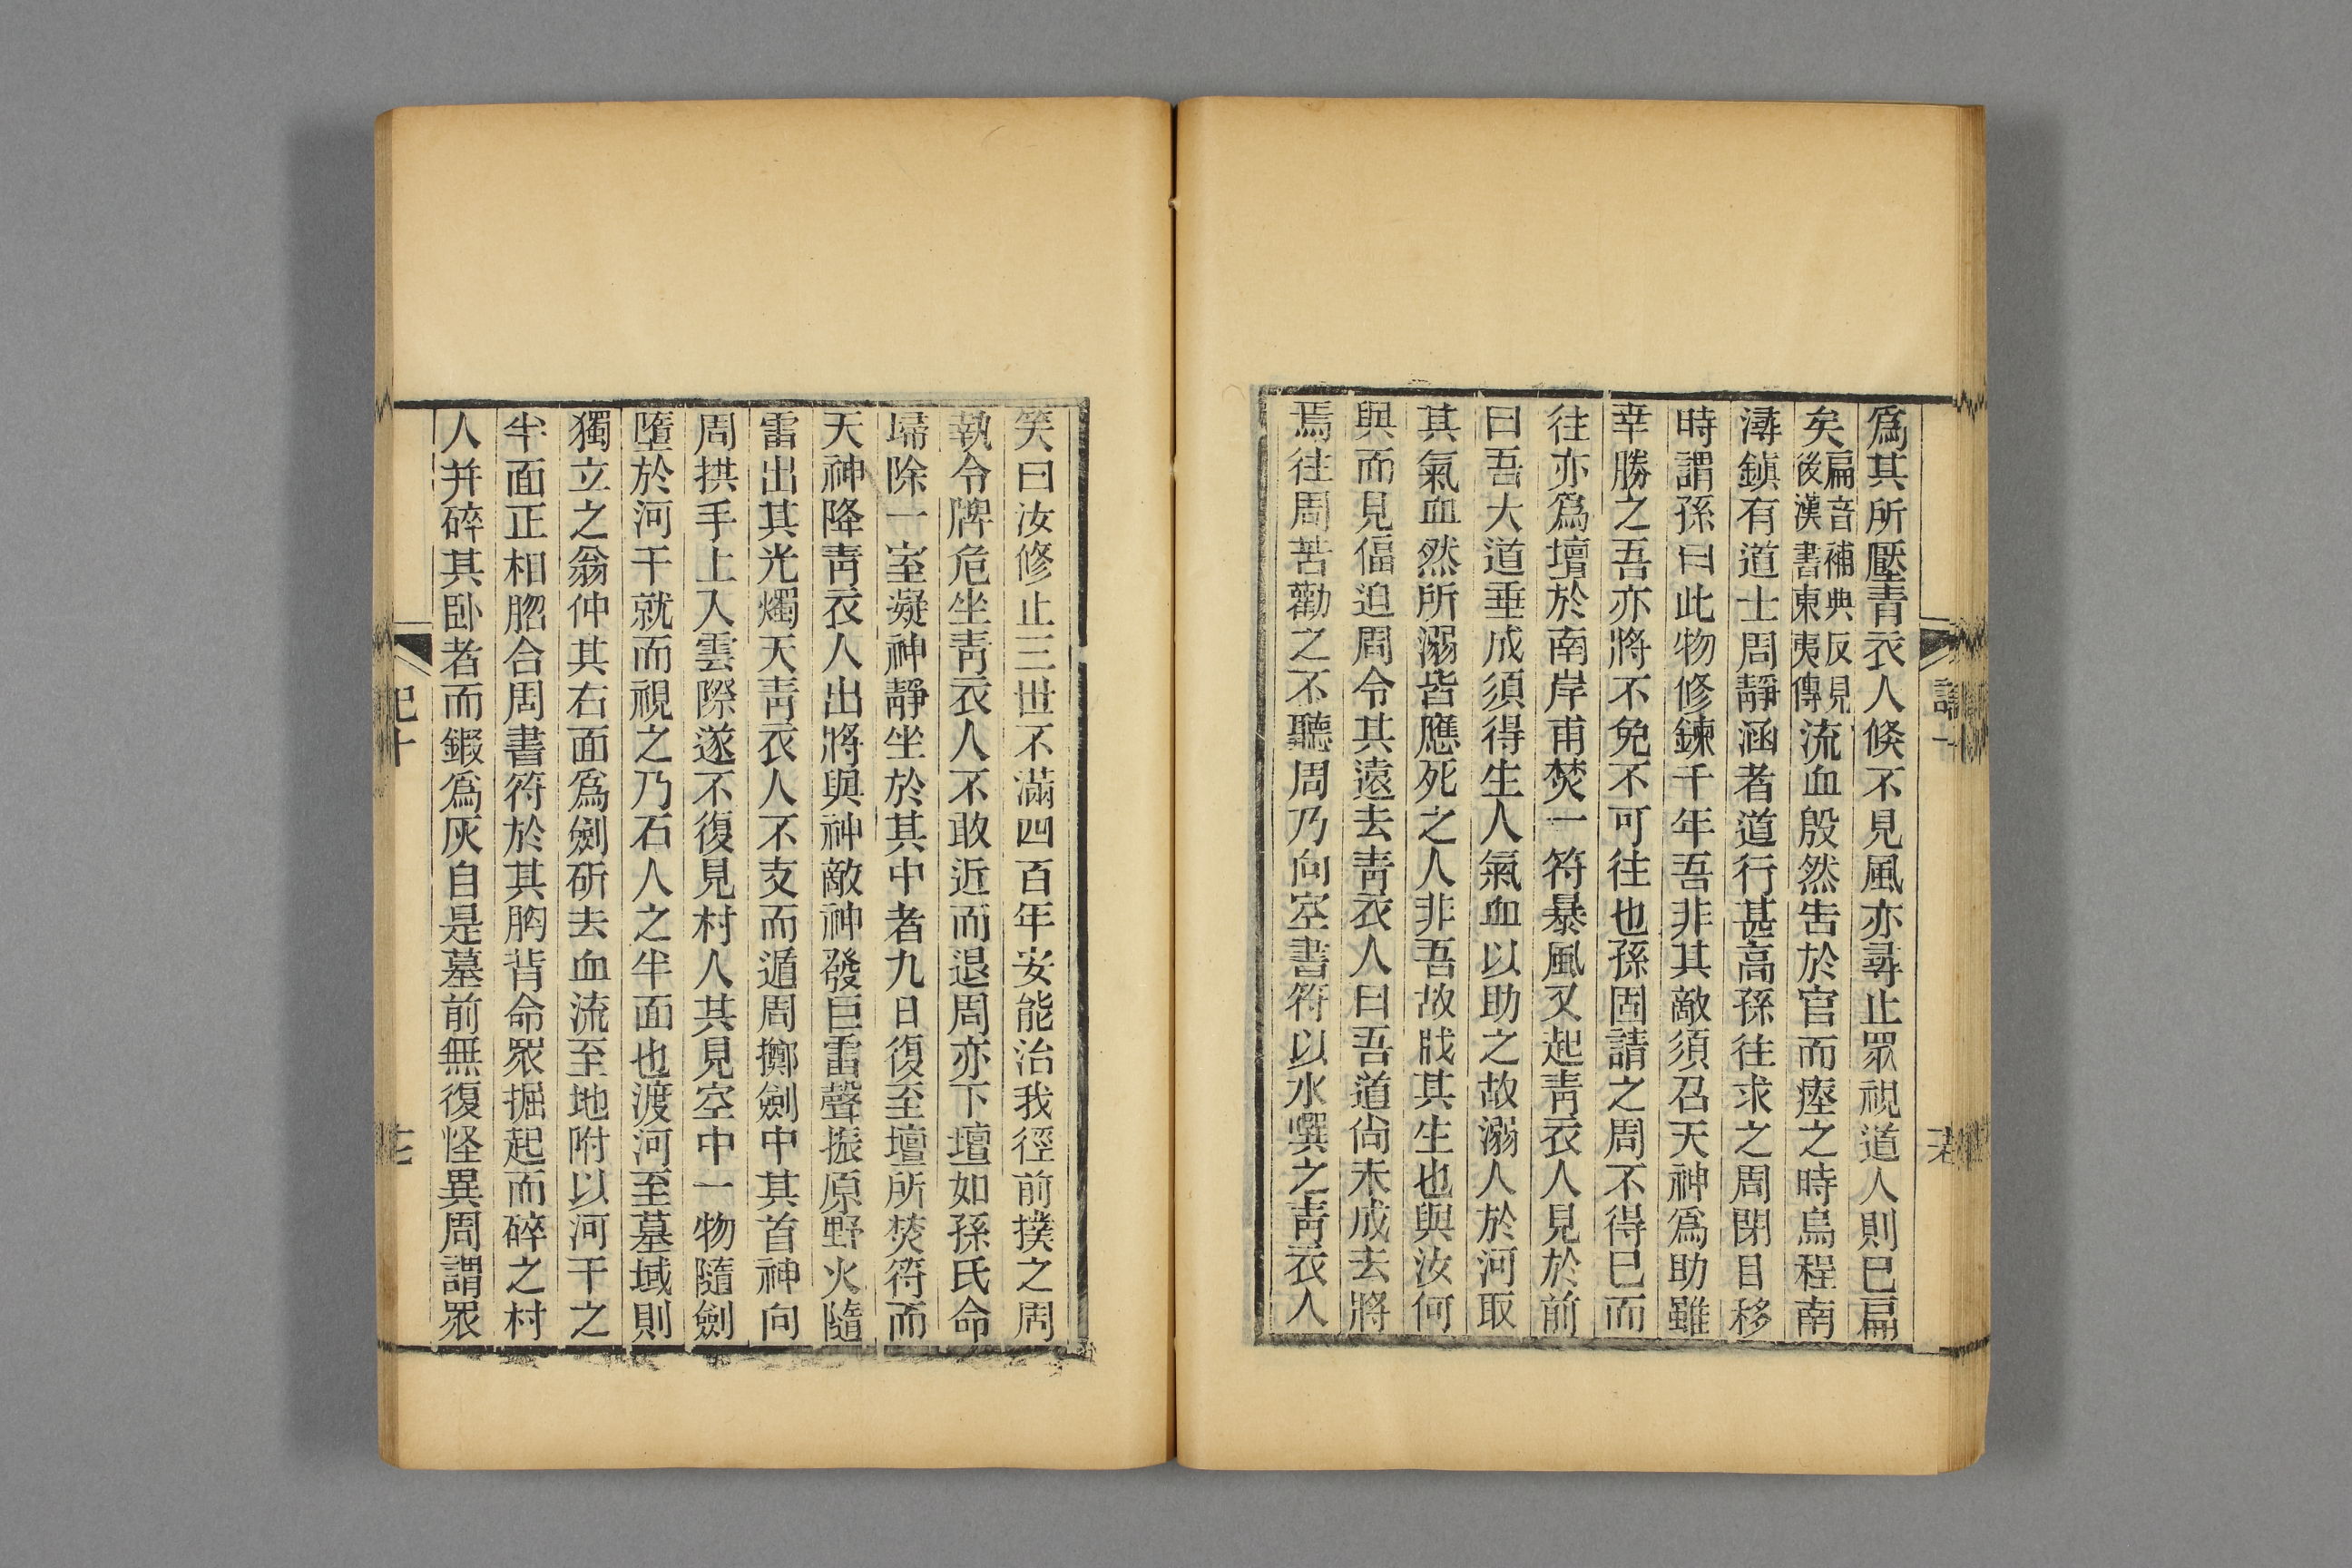 爲其所壓青衣人倏不見風亦尋止眾視道人則巳扁
矣扁音補典反見後漢書東夷傳流血殷然告於官而瘞之時烏程南
潯鎮有道士周靜涵者道行甚高孫往求之周閉目移
時謂孫曰此物修鍊千年吾非其敵須召天神爲助雖
幸勝之吾亦將不免不可往也孫固請之周不得巳而
往亦爲壇於南岸甫焚一符暴風又起青衣人見於前
曰吾大道垂成須得生人氣血以助之故溺人於河取
其氣血然所溺皆應死之人非吾故戕其生也與汝何
與而見偪迫周令其遠去青衣人曰吾道尙未成去將
焉往周苦勸之不聽周乃向空書符以水噀之靑衣人
笑曰汝修止三世不滿四百年安能治我徑前撲之周
執令牌危坐靑衣人不敢近而退周亦下壇如孫氏命
埽除一室凝神靜坐於其中者九日復至壇所焚符而
天神降靑衣人出將與神敵神發巨雷聲振原野火隨
雷出其光燭天靑衣人不支而遁周擲劍中其首神向
周拱手上入雲際遂不復見村人其見空中一物隨劍
墮於河干就而視之乃石人之半面也渡河至墓域則
獨立之翁仲其右面爲劍斫去血流至地附以河干之
半面正相脗合周書符於其胷背命眾掘起而碎之村
人并碎其臥者而鍜爲灰自是墓前無復怪異周謂眾
記十
十七